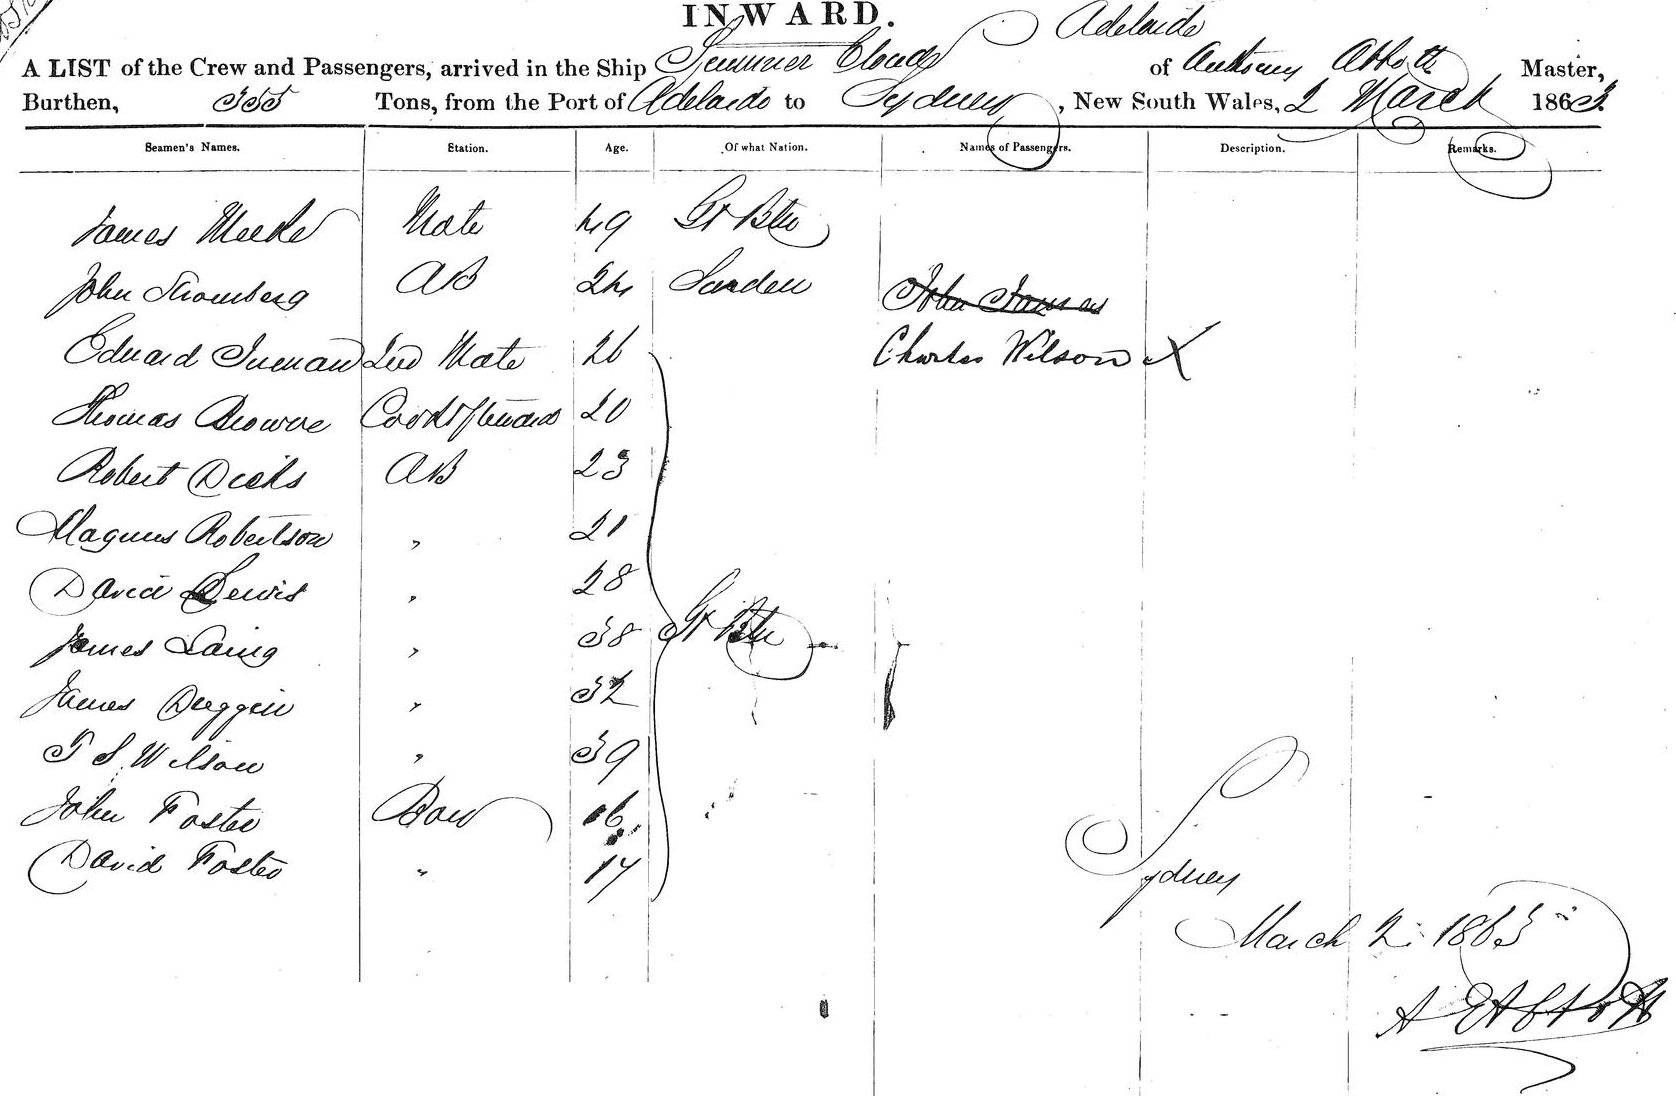 INWARD.
Adelaide
A LIST of the Crew and Passengers, arrived in the Ship Summer Cloud of Anthony Abbott Master,
Burthen, 355 Tons, from the Port of Adelaide to Sydney, New South Wales, 2 March 1863.
Seamen's Names. Station. Age. Of what Nation. Names of Passengers. Description. Remarks.
James Meeke Mate 49 Gt Btn
John Stromberg AB 24 Sweden John James
Edward Inman 2nd Mate 26 Charles Wilson X
Thomas Browne Cook & Steward 20
Robert Dicks AB 23
Magnus Robertson " 21
David Lewis " 28
James Laing " 38 Gt Btn
James Duggin " 32
T S Wilson " 39
John Foster Boy 16
David Foster " 17
Sydney
March 2 1863
A E Abbott